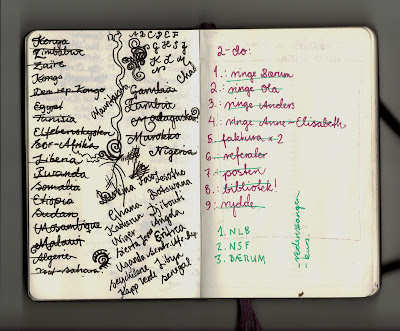 Kenya
Zimbabwe
Zaïre
Kongo
Dem. rep. Kongo
Egypt
Tunisia
Elfenbenskysten
Sør-Afrika
Liberia
Rwanda
Somalia
Etiopia
Sudan
Mosambique
Malawi
Algerie
Vest-Sahara
A B C D E F
G H I J
K L M
N
Chad
Mauritania
Gambia
Zambia
Madagaskar
Marokko
Nigeria
Burkina Faso
Lesotho
Ghana
Botswana
Kamerun
Djibouti
Niger
Angola
Sierra Leone
Eritrea
Uganda
Libya
Seychellene
Senegal
Kapp Verde
2-do:
1.: ringe Bærum
2.: ringe Ola
3.: ringe Anders
4.: ringe Anne-Elisabeth
5. faktura x 2
6. referater
7.: posten
8.: bibliotek!
9.: rydde
1. NLB
2. NSF
3. BÆRUM
- kurs